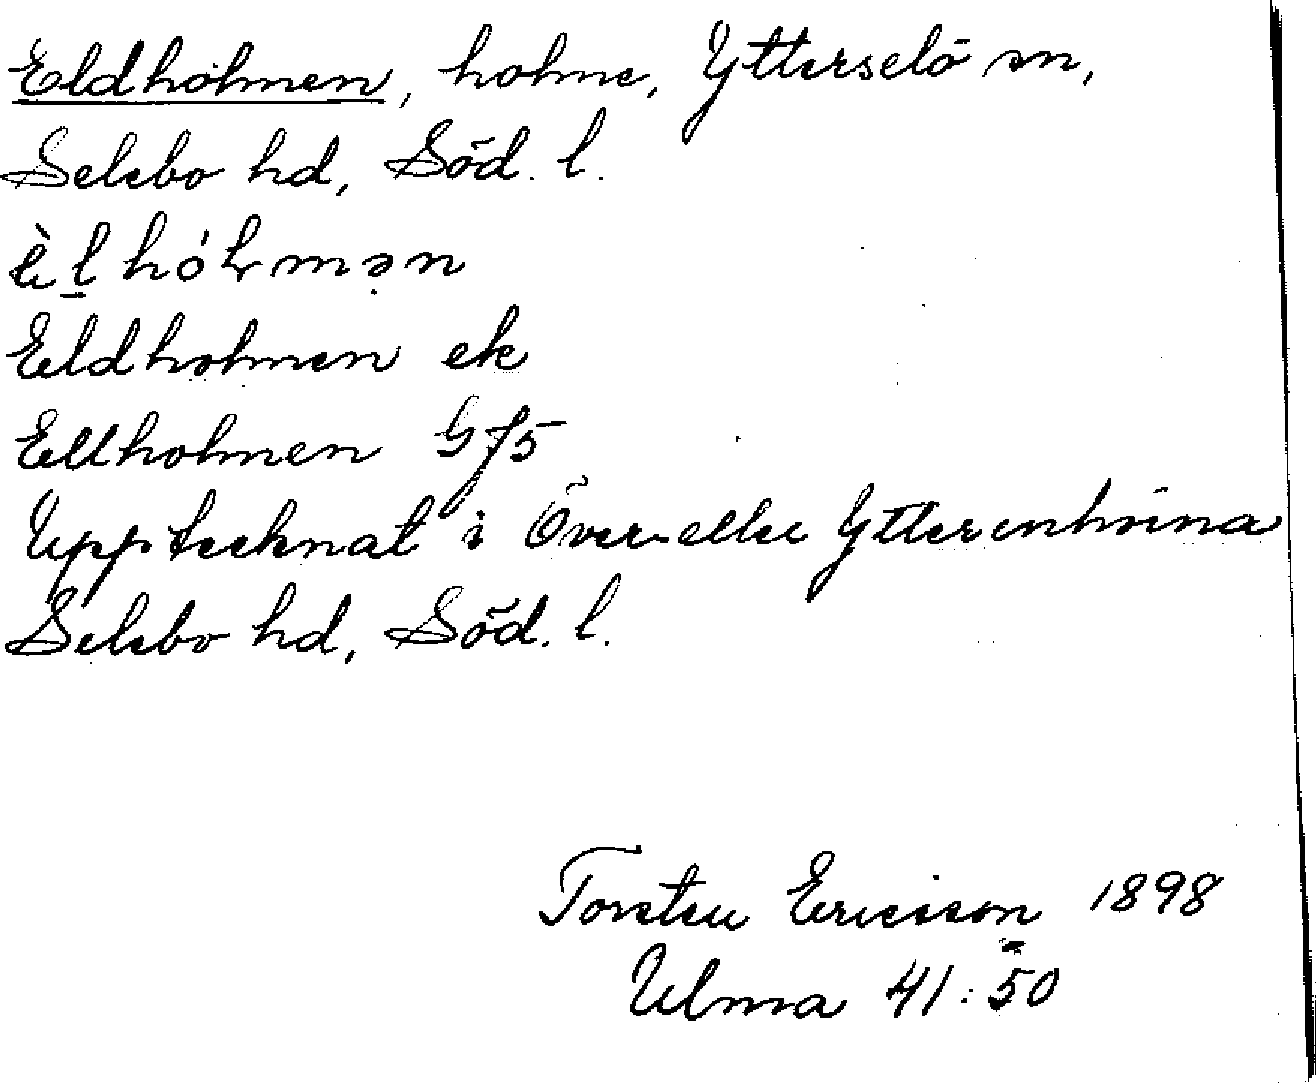 Eldholmen, holme, Ytterselö sn,
Selebo hd, Söd. l.
Eldholmen ek
Ellholmen G f5
Upptecknat i Över- eller Ytterenhörna
Selebo hd, Söd. l.
Torsten Ericsson 1898
Ulma 41:50